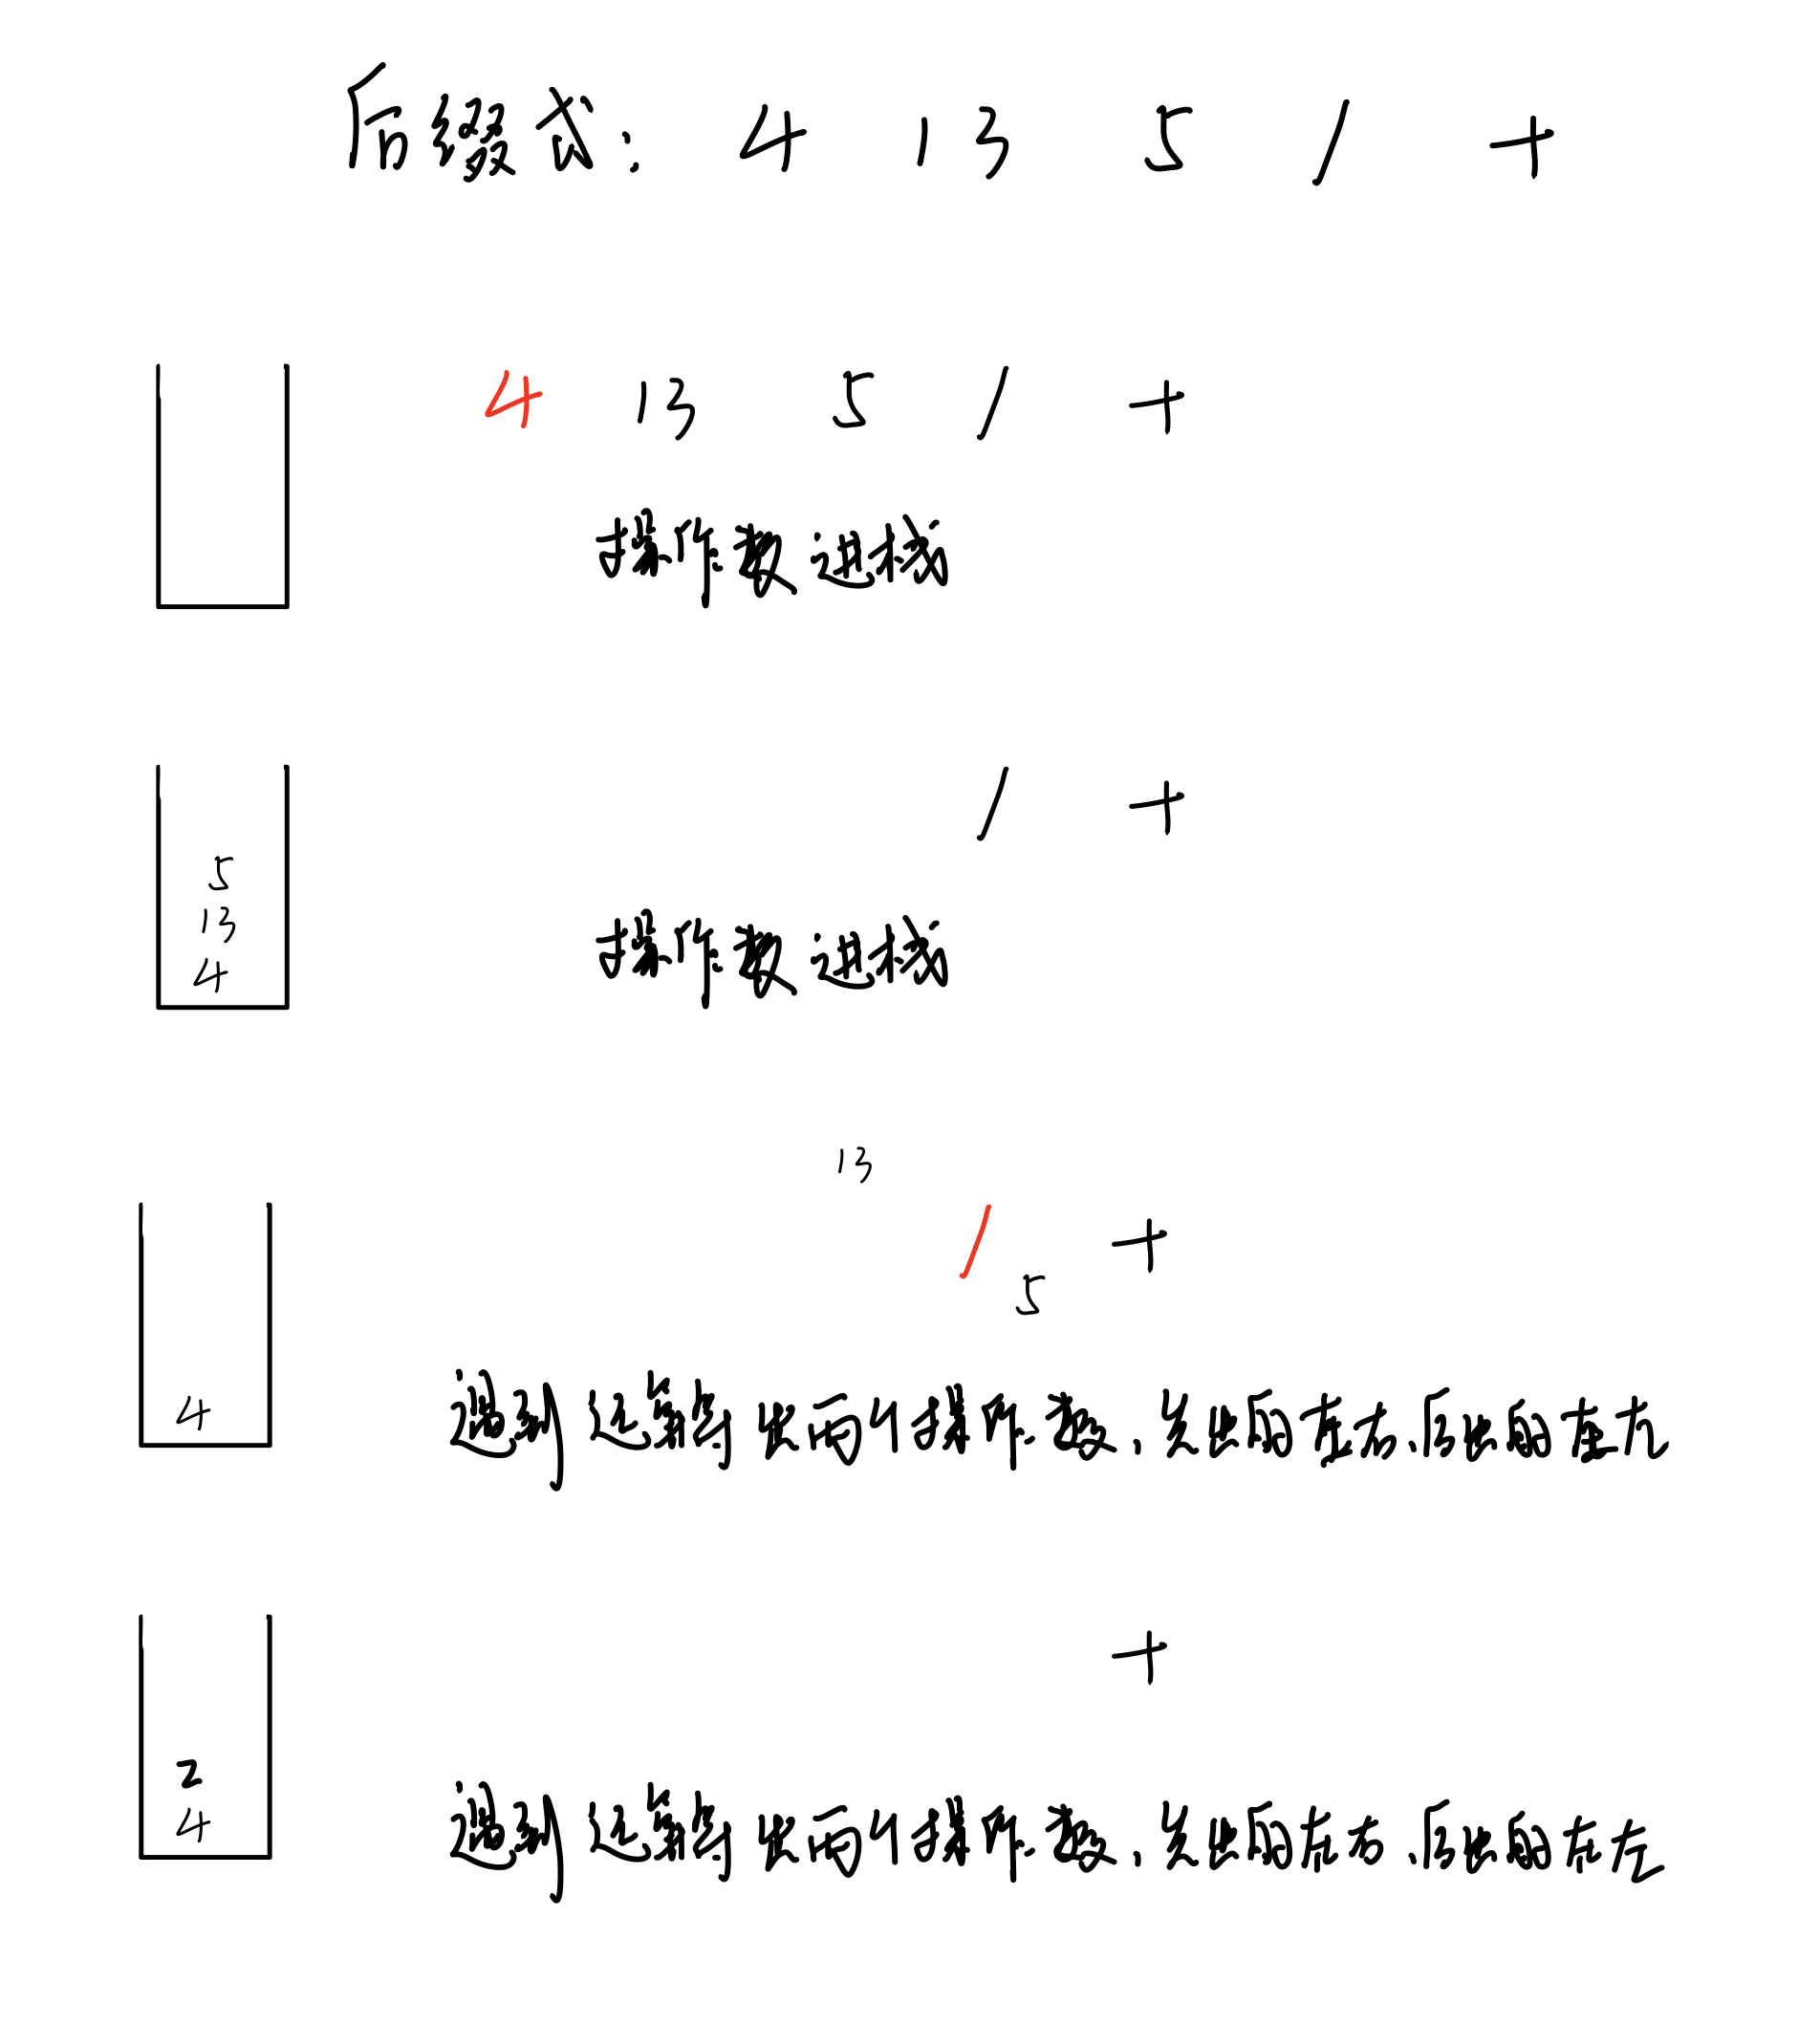 后缀式: 4 13 5 / +
4 13 5 / +
操作数进栈
/ +
5
13
4
操作数进栈
13
/ +
5
4
遇到运算符出两个操作数,先出的在右,后出的在左
+
2
4
遇到运算符出两个操作数,先出的在右,后出的在左